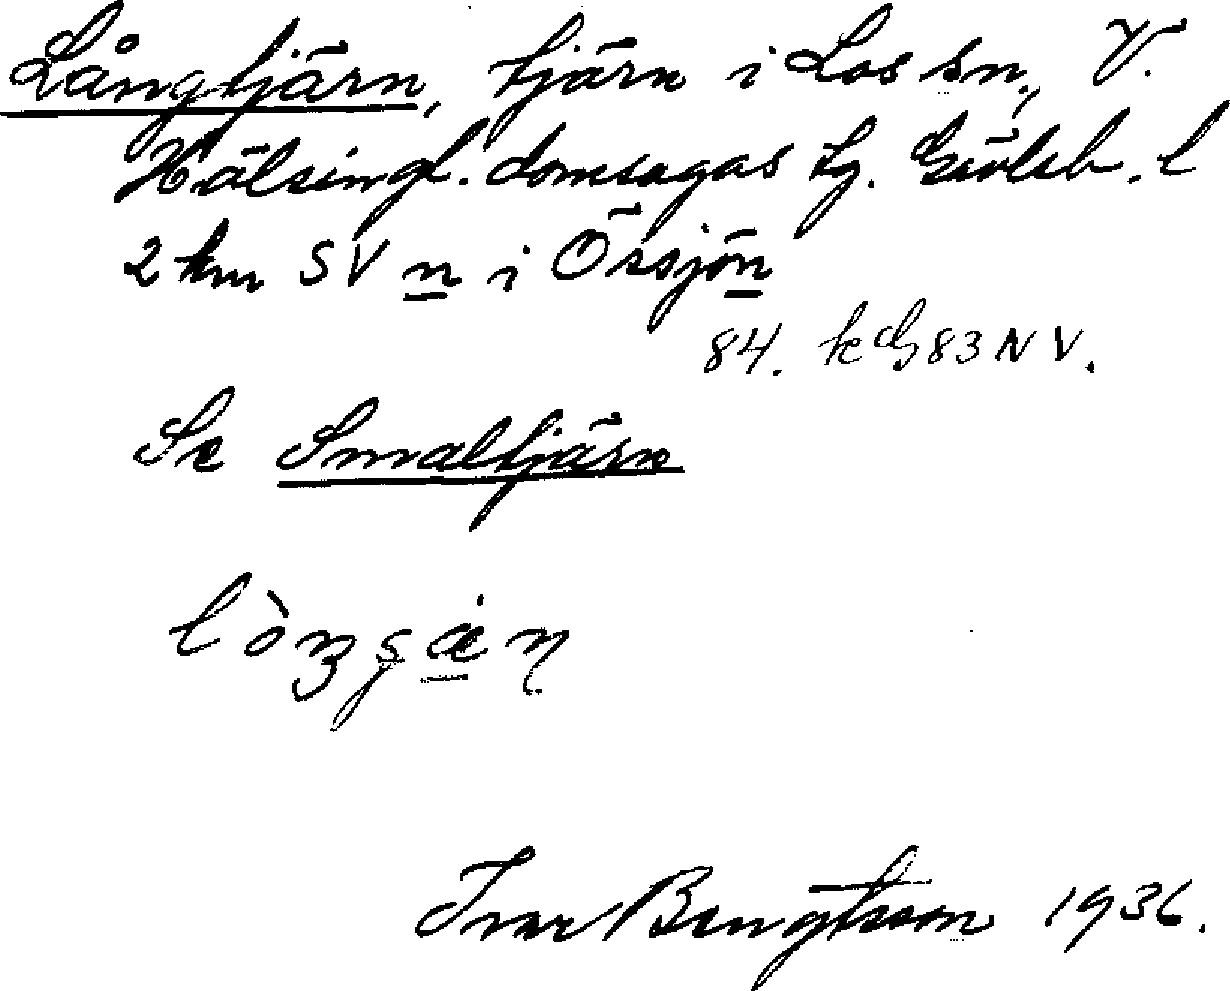 Långtjärn, tjärn i Los sn., V.
Hälsingl. domsagas tg. Gävleb. l
2 km SV n i Össjön
84. ke G83 NV.
Se Smaltjärn
Ivar Bengtsson 1936.